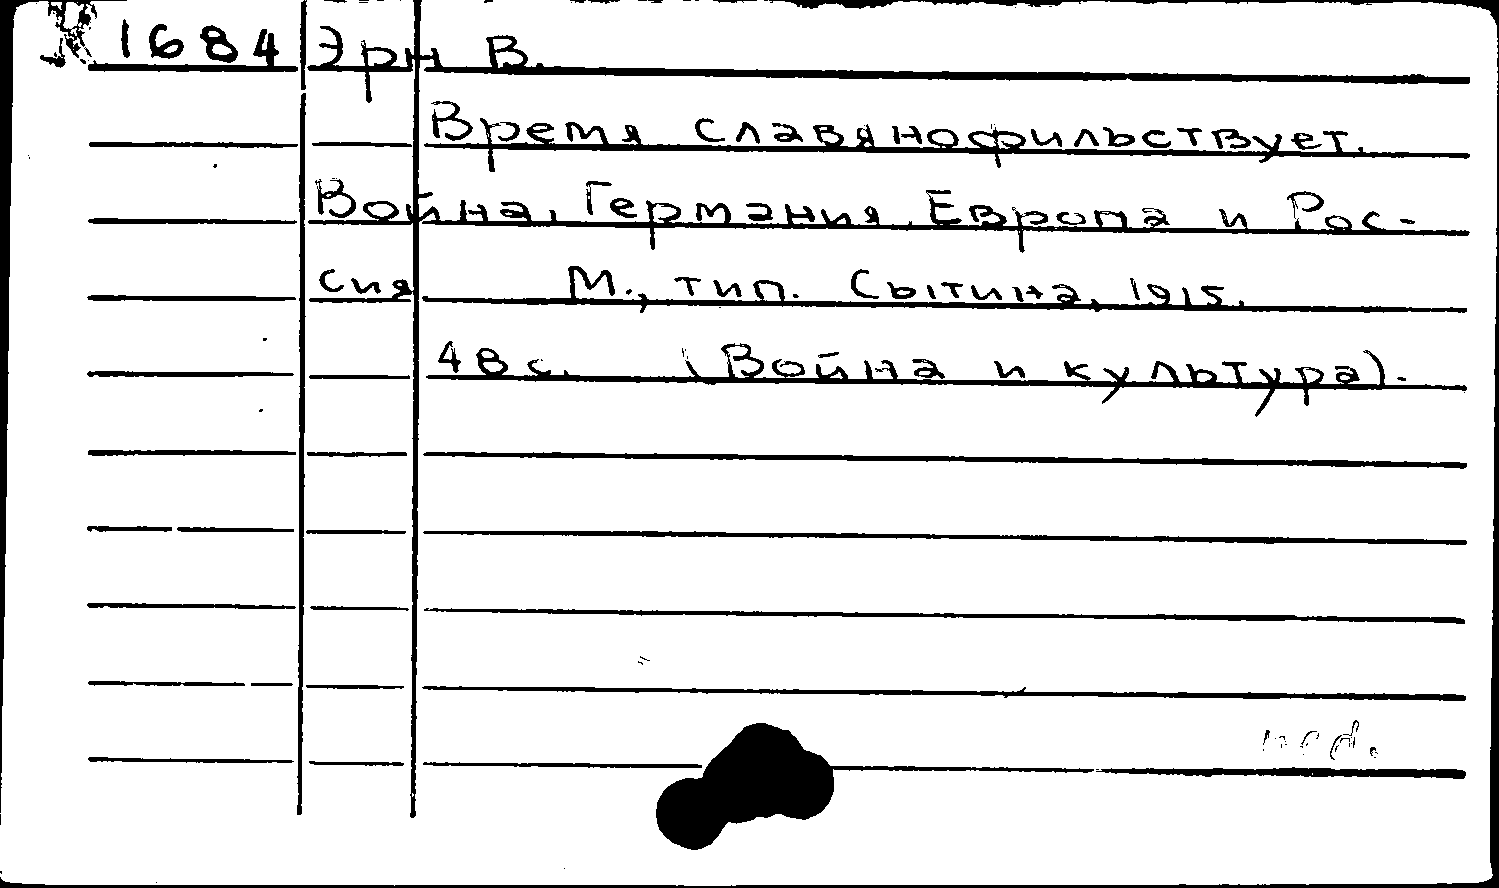 R 1684 Эрн В.
Время славянофильствует.
Война, Германия, Европа и Рос-
сия М., тип. Сытина, 1915.
48 с. (Война и культура).